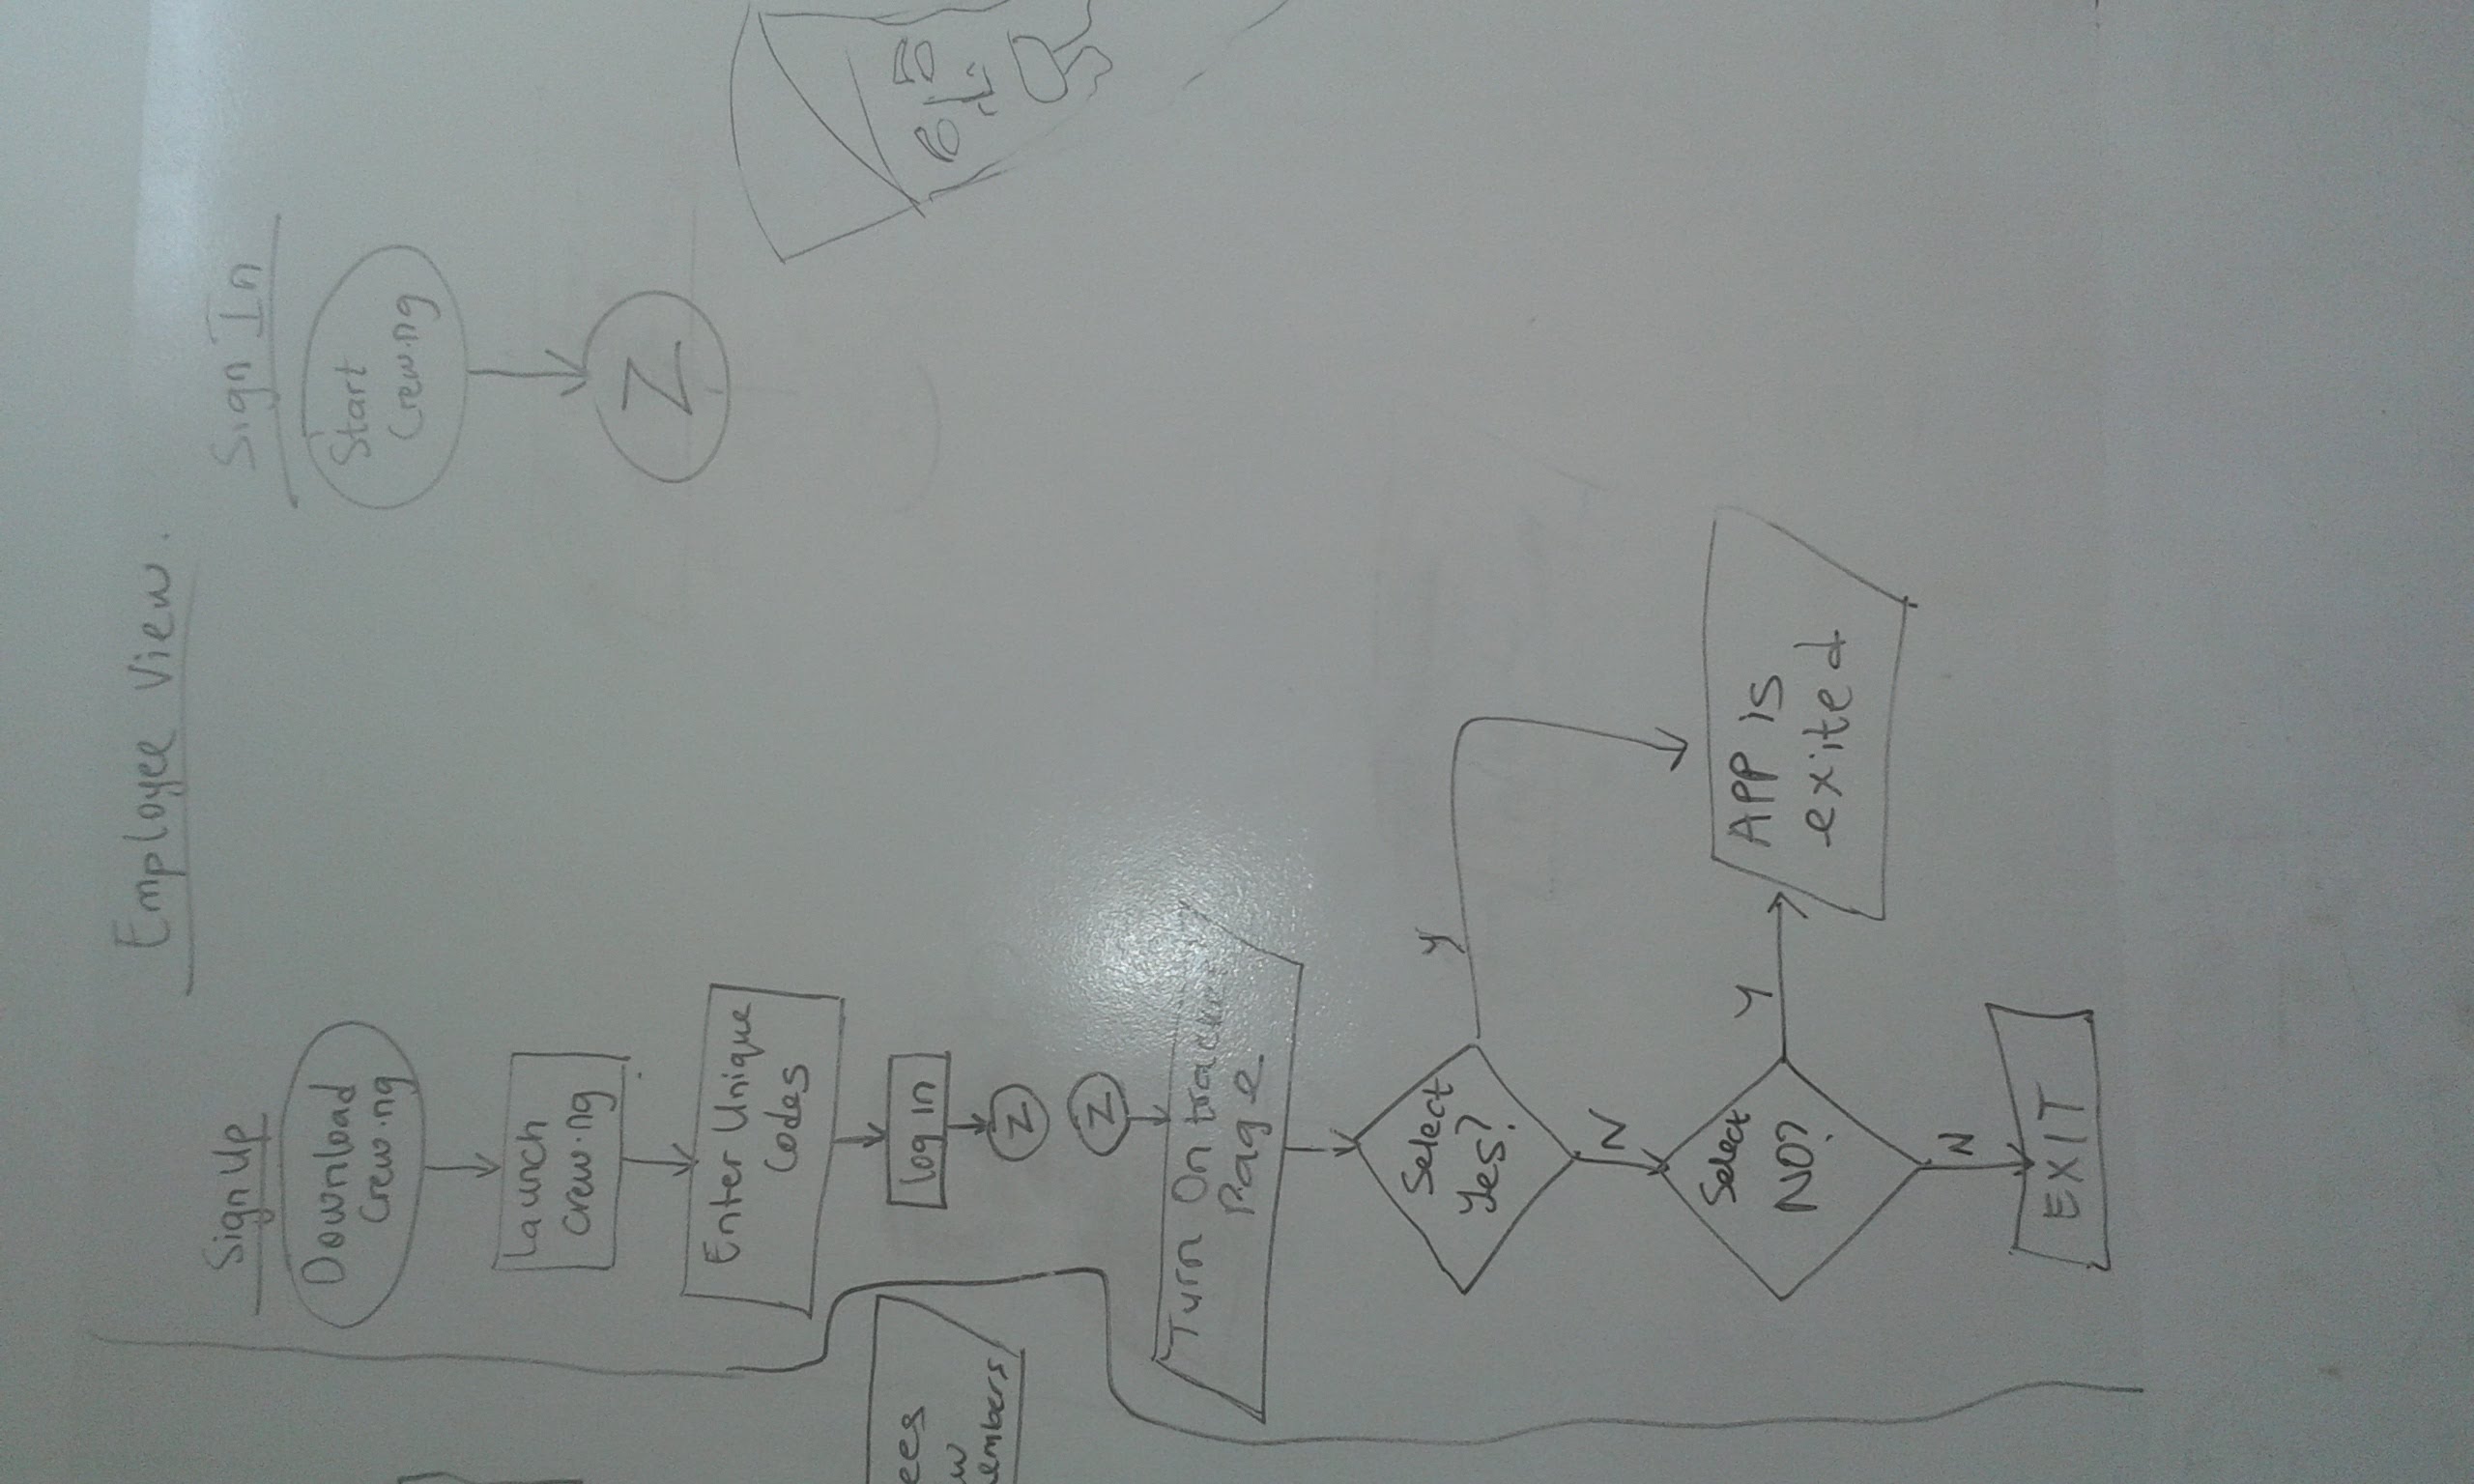 Employee View.
Sign Up
Download
Crew.ng
Launch
Crew.ng
Enter Unique
Codes
log in
Z
Z
Turn On tracker
Page
Select
Yes?
Y
N
Select
NO?
Y
APP is
exited
N
EXIT
Sign In
Start
Crew.ng
Z
ees
w
embers